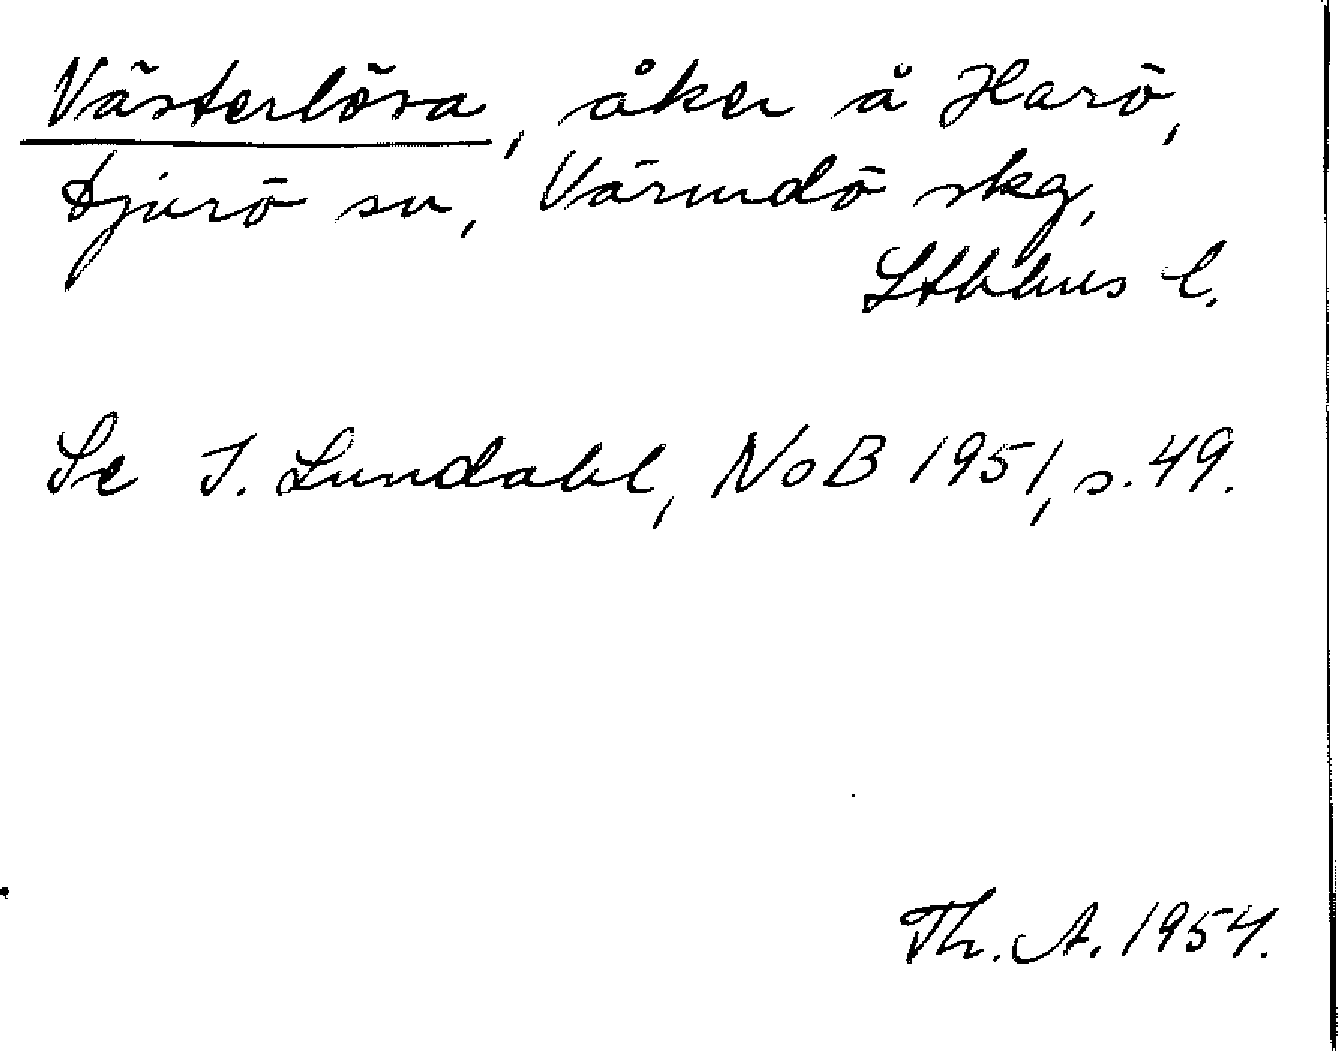 Västerlöva, åker å Harö,
Djurö sn, Värmdö skg,
Sthlms l.
Se I. Lundahl, NoB 1951, s. 49.
Th. A. 1954.